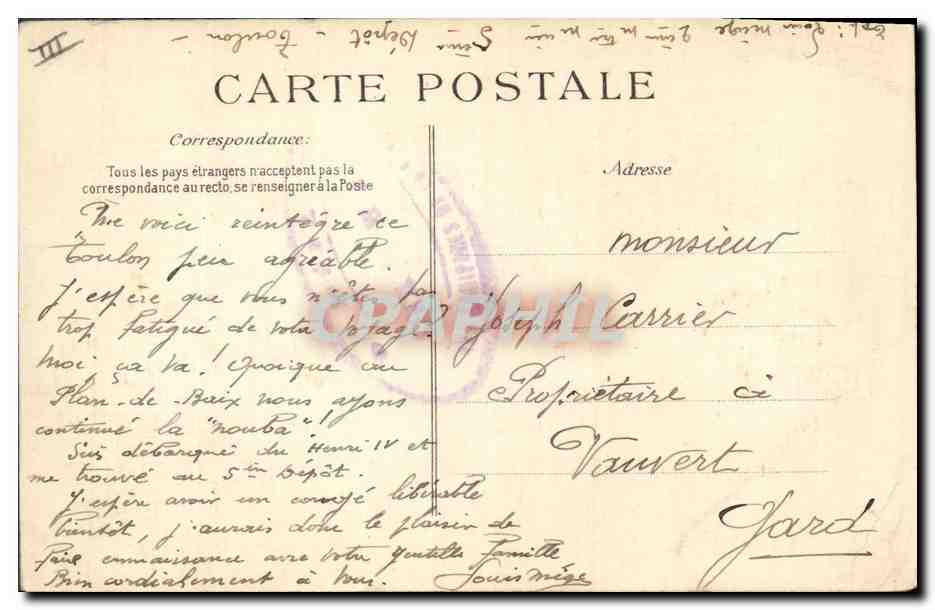 III
Exp: Louis Mège 5ème Dépôt - Toulon -
CARTE POSTALE
Correspondance:
Tous les pays étrangers n'acceptent pas la
correspondance au recto, se renseigner à la Poste
Adresse
Me voici réintégré ce
Toulon peu agréable.
J'espère que vous n'êtes pas
trop fatigué de votre voyage?
Moi, ça va! Quoique au
Plan-de-Baix nous ayons
continué la "nouba"!
Suis débarqué du "Henri IV et
me trouve au 5ème Dépôt.
J'espère avoir un congé libérable
bientôt, j'aurais donc le plaisir de
faire connaissance avec votre gentille famille
Bien cordialement à vous. Louis Mège
Monsieur
Joseph Carrier
Propriétaire à
Vauvert
Gard
CPAPHIL